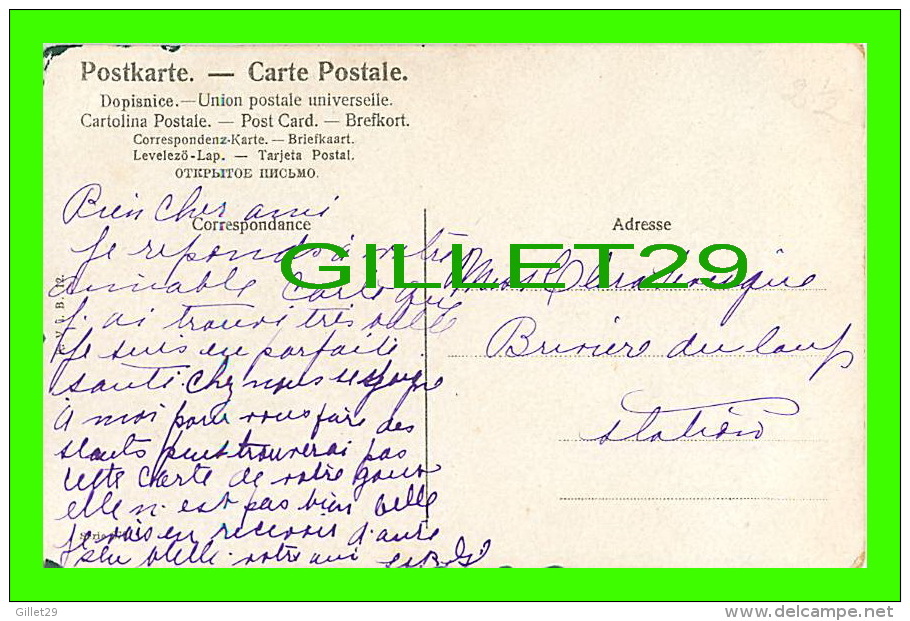 Postkarte. — Carte Postale.
Dopisnice. — Union postale universelle.
Cartolina Postale. — Post Card. — Brefkort.
Correspondenz-Karte. — Briefkaart.
Levelező-Lap. — Tarjeta Postal.
ОТКРЫТОЕ ПИСЬМО.
Correspondance
Adresse
Bien cher ami
Je reponds à votre
aimable carte que
j'ai trouvi très belle
Je suis en parfaite
santi. chez nous
à moi pour vous faire des
trouverai pas
cette carte de votre gout
elle n'est pas bien belle
Je vais en recevoir d'autre
belle. votre ami
Briviere du loup
station
GILLET29
Gillet29
www.delcampe.net